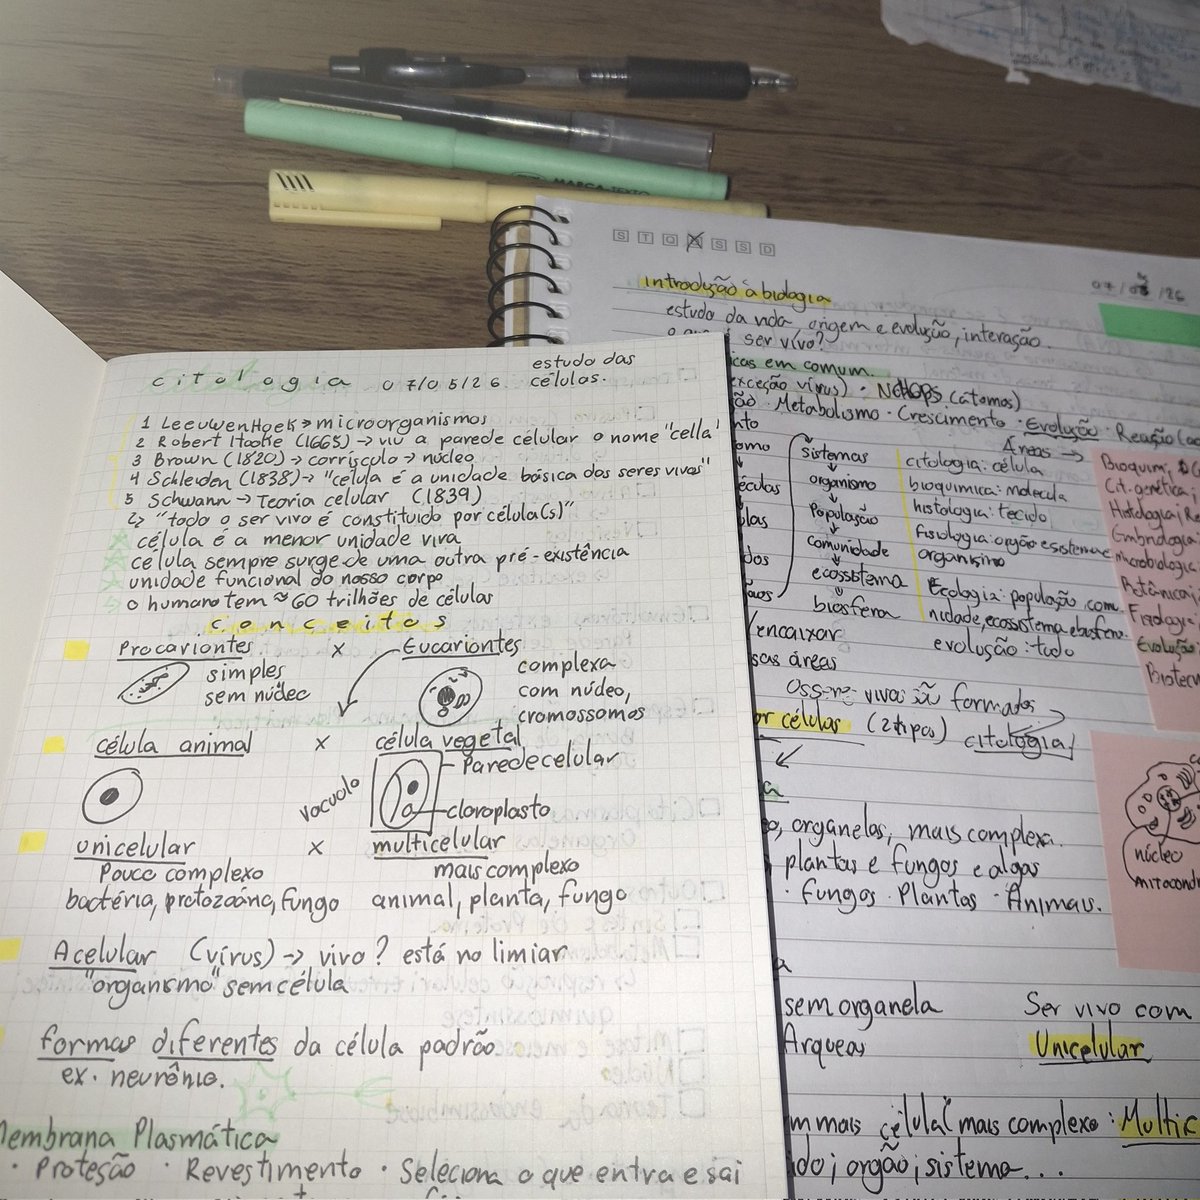 MARCA-TEXTO
citologia 07/05/26 estudo das células.
1 Leeuwenhoek → microorganismos
2 Robert Hooke (1665) → viu a parede célular o nome "cella"
3 Brown (1820) → corrísculo → núcleo
4 Schleiden (1838) → "célula é a unidade básica dos seres vivos"
5 Schwann → Teoria celular (1839)
↳ "todo o ser vivo é constituido por célula(s)"
célula é a menor unidade viva
célula sempre surge de uma outra pré-existência
unidade funcional do nosso corpo
o humano tem ≈ 60 trilhões de células
conceitos
Procariontes x Eucariontes
simples
sem núcleo
complexa
com núcleo,
cromossomos
célula animal x célula vegetal
Parede celular
vacuolo
cloroplasto
unicelular x multicelular
Pouco complexo
mais complexo
bactéria, protozoário, fungo
animal, planta, fungo
Acelular (vírus) → vivo? está no limiar
"organismo" sem célula
formas diferentes da célula padrão
ex. neurônio.
Membrana Plasmática
· Proteção · Revestimento · Seleciona o que entra e sai
S T Q S S D
07/05/26
introdução à biologia
estudo da vida origem e evolução, interação.
ser vivo?
icas em comum.
exceção vírus) · NCHOPS (átomos)
ão · Metabolismo · Crescimento · Evolução · Reação
sistemas
organismo
População
comunidade
ecossistema
biosfera
Áreas →
citologia: célula
bioquimica: molecula
histologia: tecido
fisiologia: orgão e sistema e
organismo
Ecologia: população, com
nidade, ecossistema e biosfera.
evolução: tudo
Bioquim
Cit. genética
Histologia
Embriologia
Microbiologia
Botânica
Evolução
encaixar
sas áreas
Os seres vivos são formados
or células (2 tipos) citologia
o, organelas, mais complexa.
plantas e fungos e algas
· Fungos · Plantas · Animais.
núcleo
mitocond
sem organela
Arqueas
Ser vivo com
Unicelular
m mais célula mais complexo: Multic
ido, orgão, sistema...